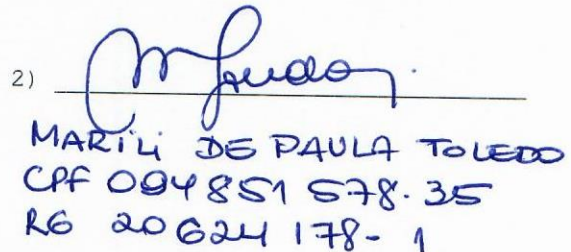 2)
MARILI DE PAULA TOLEDO
CPF 094851578.35
RG 20624178-1